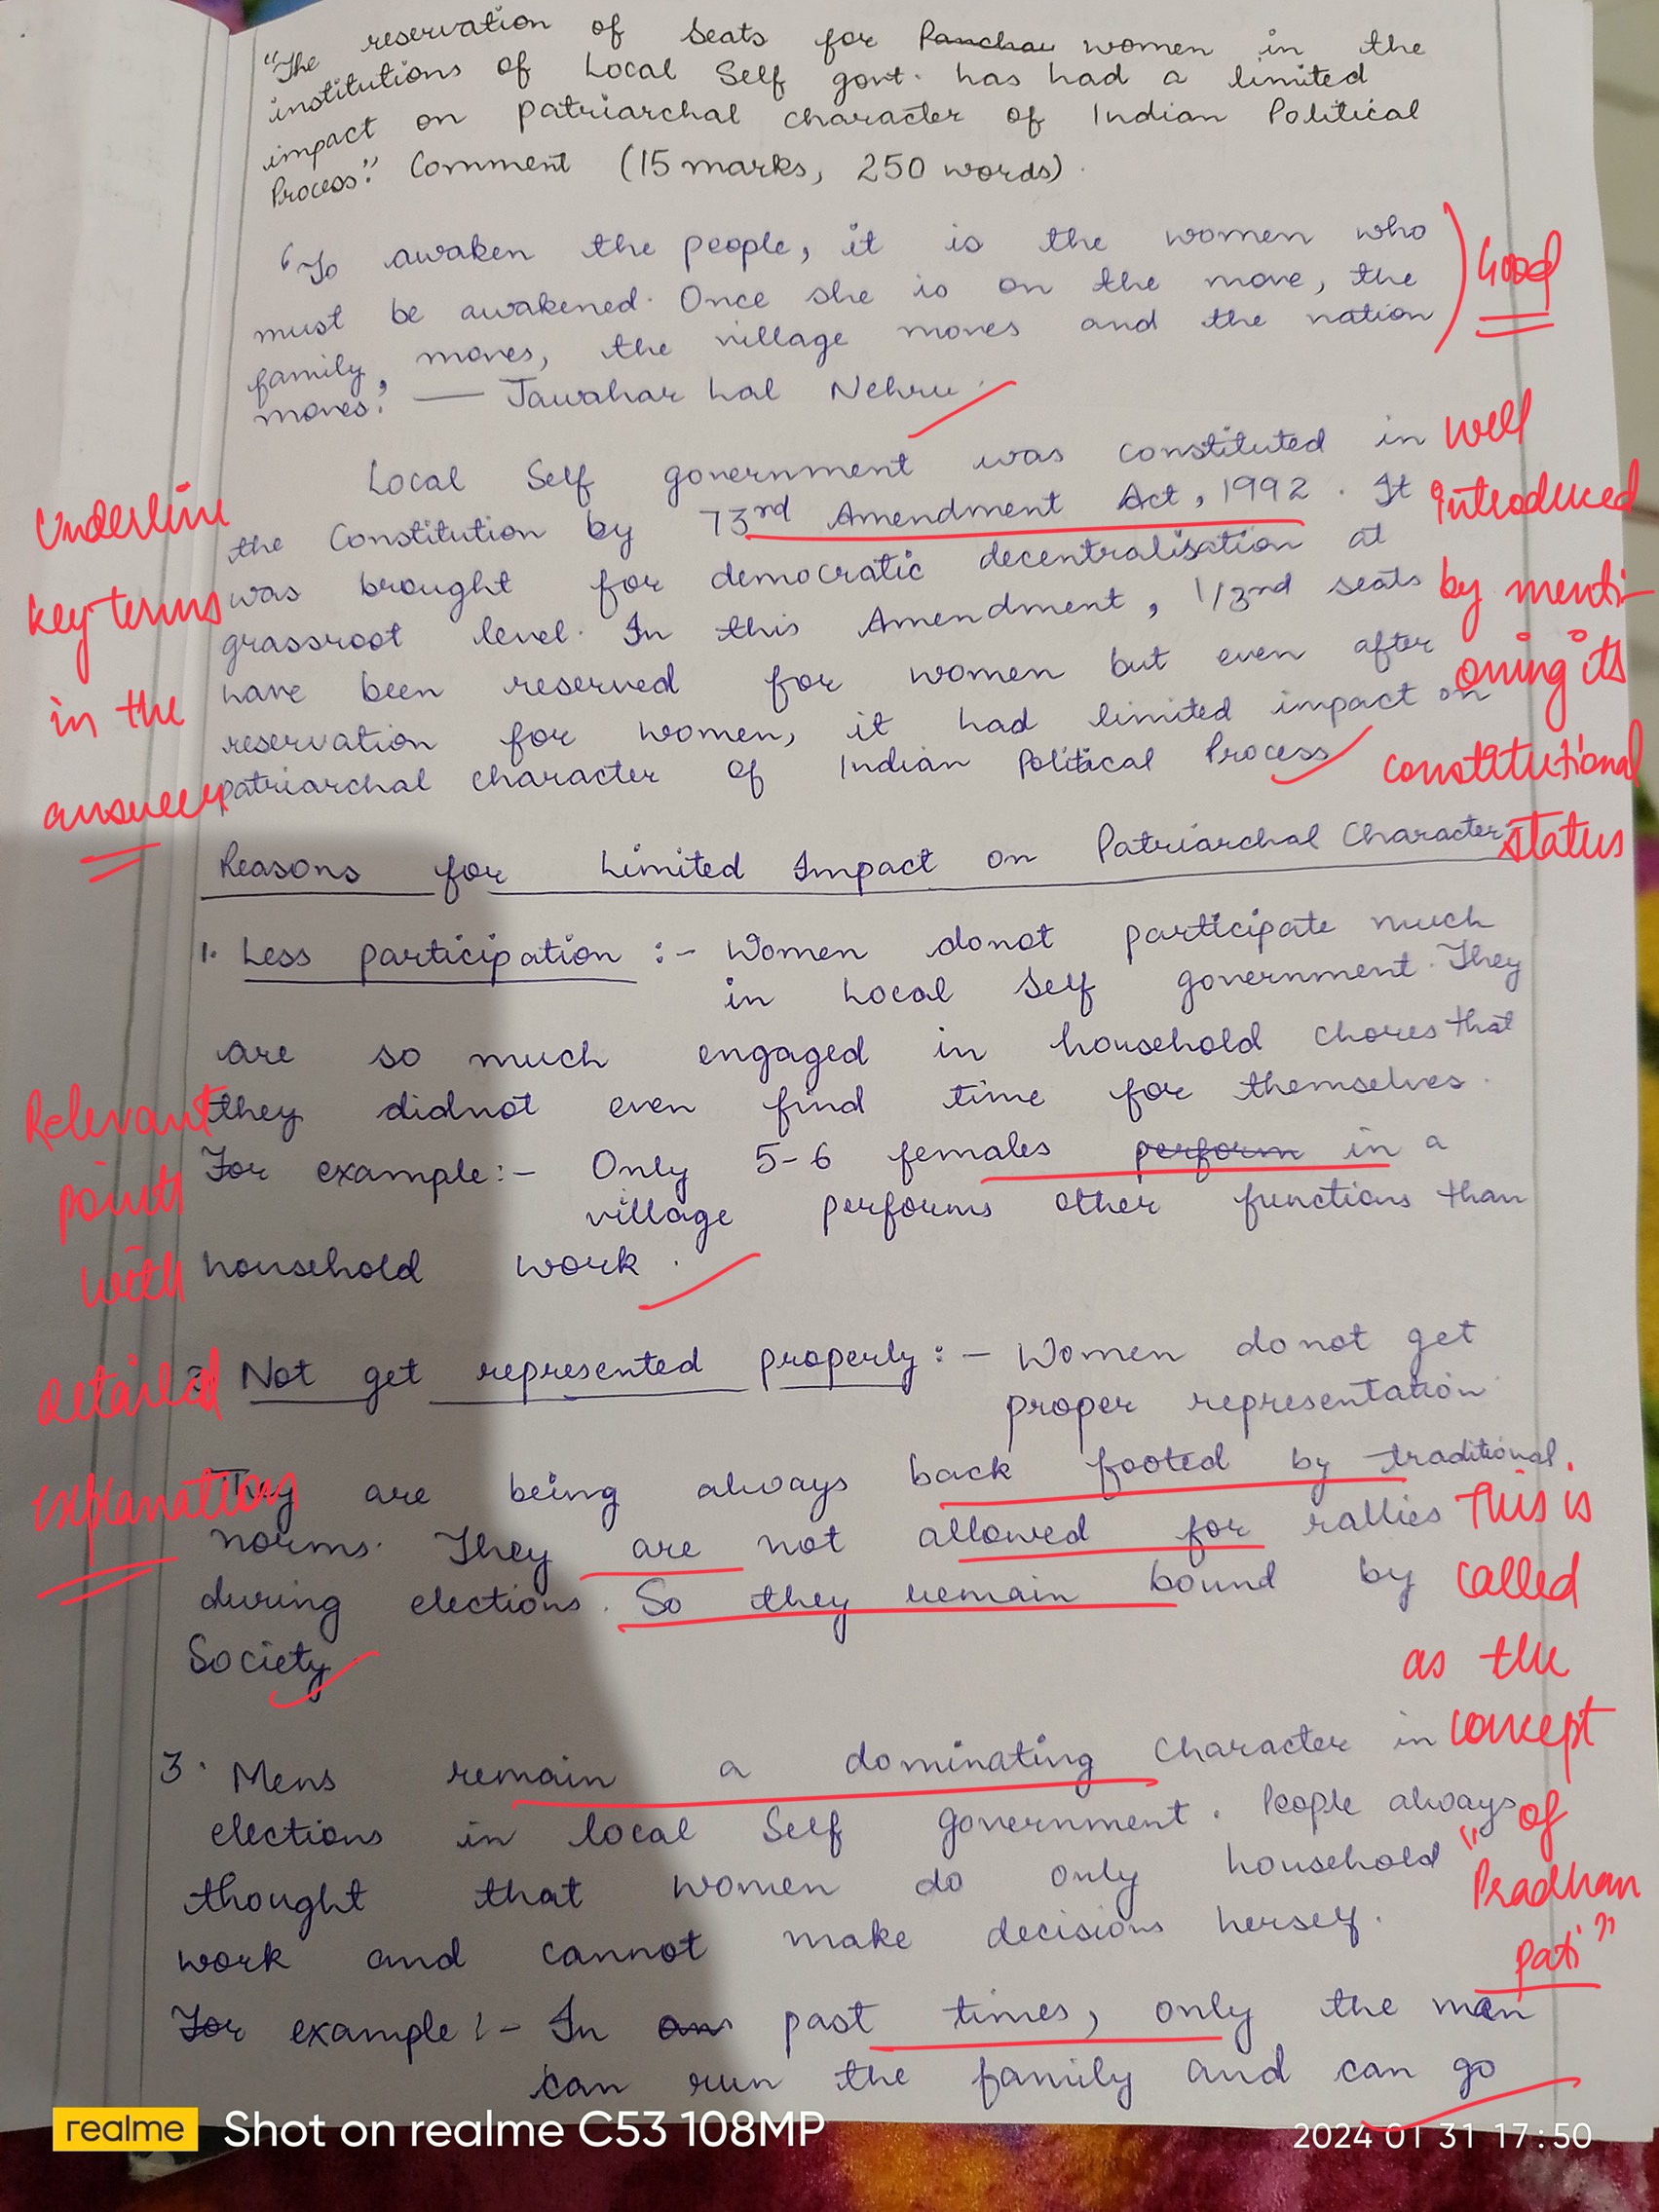 "The reservation of Seats for Panchau women in the
institutions of Local Self govt. has had a limited
impact on patriarchal character of Indian Political
Process." Comment (15 marks, 250 words).
"To awaken the people, it is the women who
must be awakened. Once she is on the move, the
family, moves, the village moves and the nation
moves." — Jawahar Lal Nehru.
Good
Local Self government was constituted in
the Constitution by 73rd Amendment Act, 1992. It
was brought for democratic decentralisation at
grassroot level. In this Amendment, 1/3rd seats
have been reserved for women but even after
reservation for women, it had limited impact on
patriarchal character of Indian Political Process
Underline
key terms
in the
answer
well
introduced
by menti-
oning its
constitutional
status
Reasons for Limited Impact on Patriarchal Character
1. Less participation :- Women donot participate much
in Local Self government. They
are so much engaged in household chores that
they didnot even find time for themselves.
For example:- Only 5-6 females perform in a
village performs other functions than
household work.
Relevant
points
with
detailed
explanation
2. Not get represented properly:- Women do not get
proper representation
They are being always back footed by traditional
norms. They are not allowed for rallies
during elections. So they remain bound by
Society
3. Mens remain a dominating character in
elections in local Self government. People always
thought that women do only household
work and cannot make decisions herself.
For example:- In an past times, only the man
can run the family and can go
This is
called
as the
concept
of
"Pradhan
Pati"
realme Shot on realme C53 108MP
2024 01 31 17:50